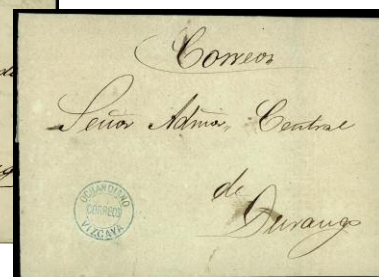 Correos
Señor Admor. Central
de
Durango
OCHANDIANO
CORREOS
VIZCAYA